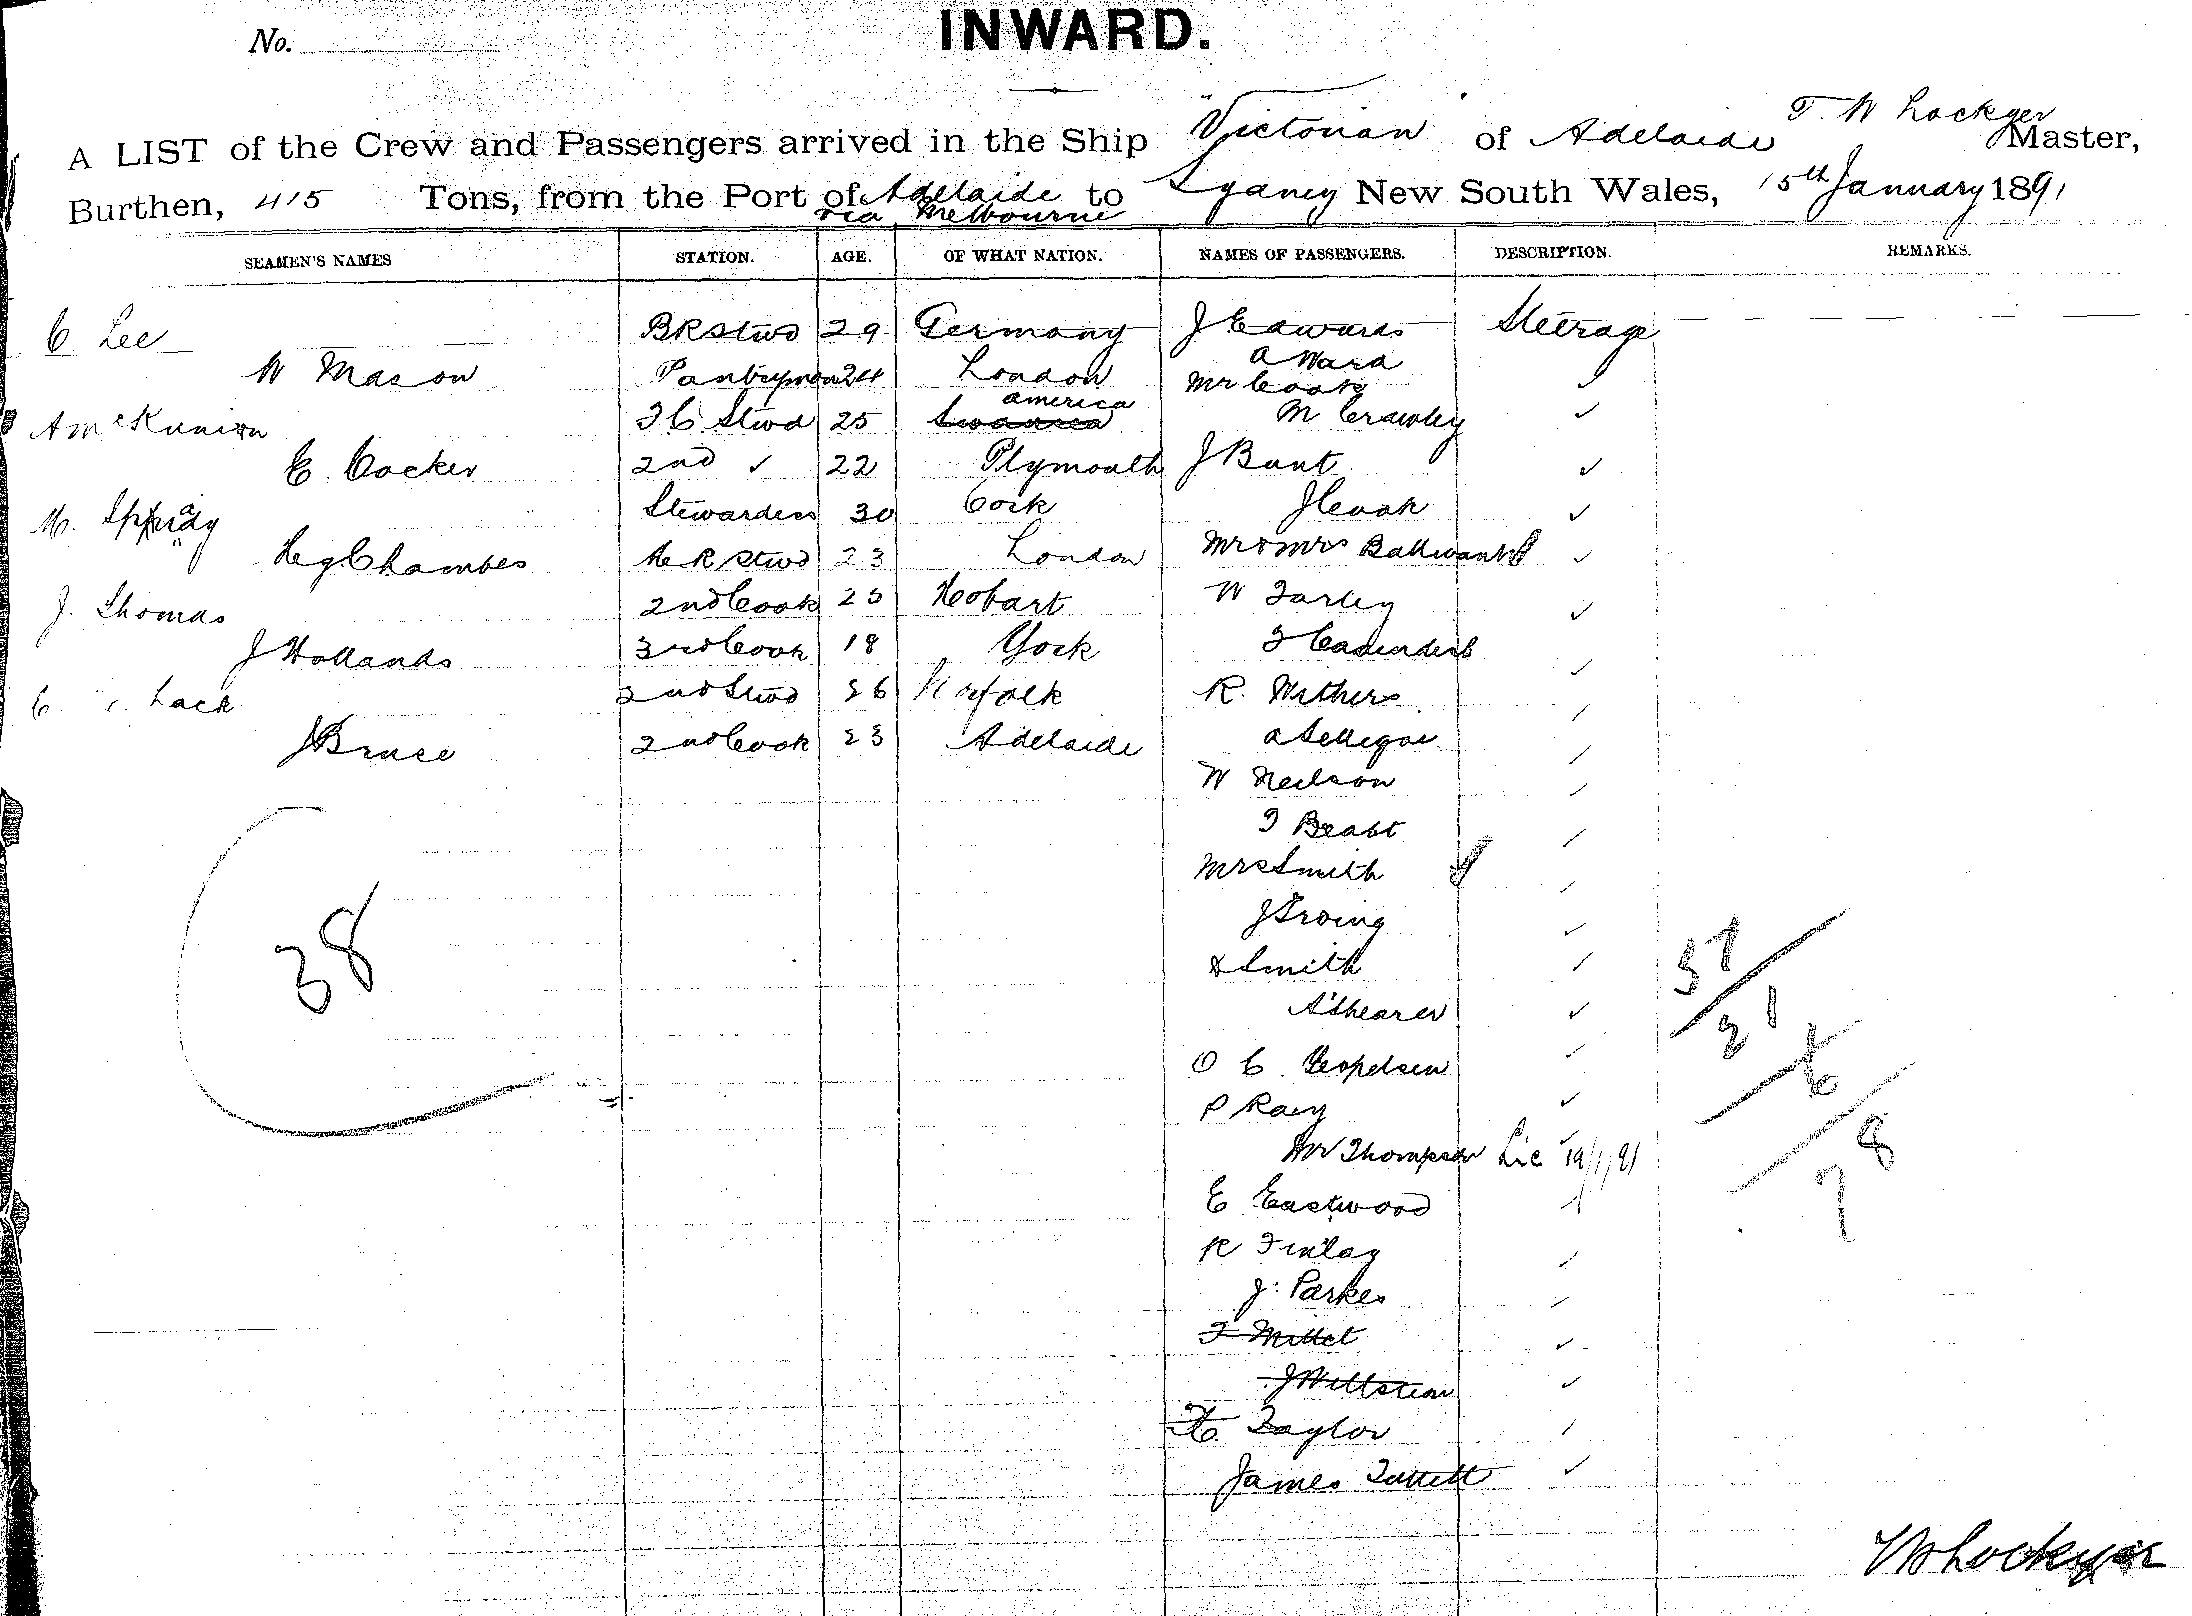 No.
INWARD.
A LIST of the Crew and Passengers arrived in the Ship Victorian of Adelaide T. W Lockyer Master,
Burthen, 415 Tons, from the Port of Adelaide via Melbourne to Sydney New South Wales, 15th January 1891
SEAMEN'S NAMES STATION. AGE. OF WHAT NATION. NAMES OF PASSENGERS. DESCRIPTION. REMARKS.
C Lee BRStwd 29 Germany J Edwards Steerage
A Ward
W Mason Pantryman 24 London Mr Cook
A McKunion 3 C Stwd 25 america M Crawley
E. Cocker 2nd ✓ 22 Plymouth J Bant
M. Stewardess 30 Cork J Cook
Chambes Stwd 23 London Mr & Mrs
J. Thomas 2nd Cook 25 Hobart W Farley
J Hollands 3rd Cook 18 York
C Lack 2nd Stwd 26 Norfolk R. Withers
J Bruce 2nd Cook 23 Adelaide
W Neilson
Mrs Smith
J Irving
Smith
A Shearer
O C
P
Mr Thompson Lic 19/1/91
E Eastwood
R Finlay
J. Parkes
Taylor
James
38